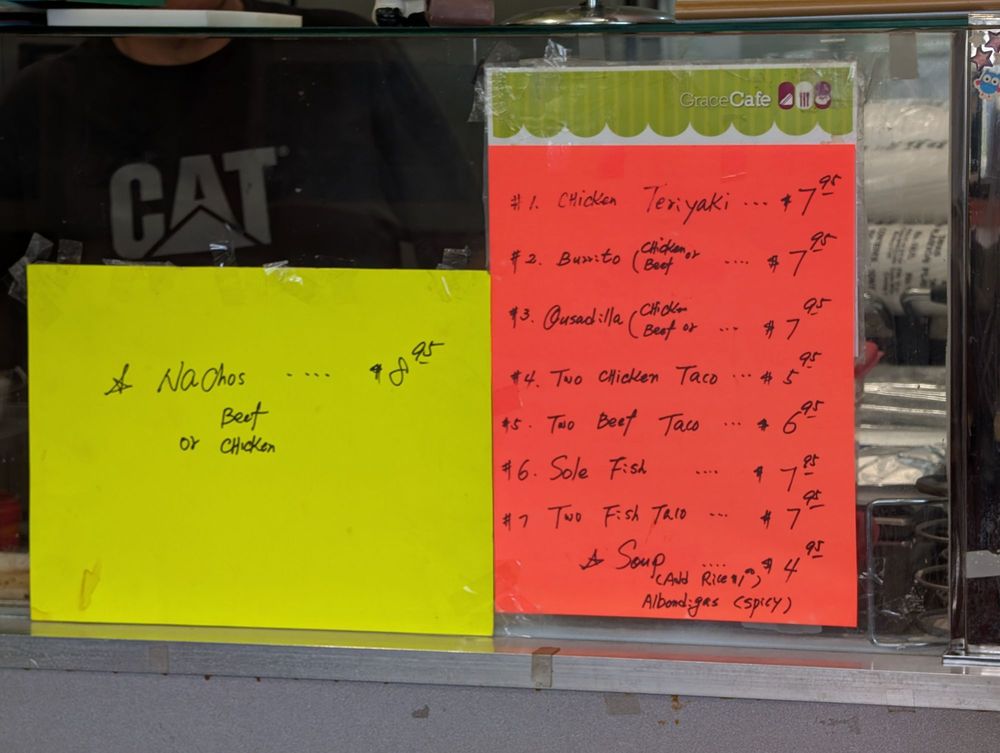 CAT
☆ Nachos .... $8.95
Beef
or Chicken
GraceCafe
#1. Chicken Teriyaki ... $7.95
#2. Burrito (Chicken or Beef .... $7.95
#3. Qusadilla (Chicken Beef or ... $7.95
#4. Two Chicken Taco ... $5.95
#5. Two Beef Taco ... $6.95
#6. Sole Fish .... $7.95
#7 Two Fish Taco ... $7.95
☆ Soup .... $4.95
(Add Rice $1.00)
Albondigas (spicy)